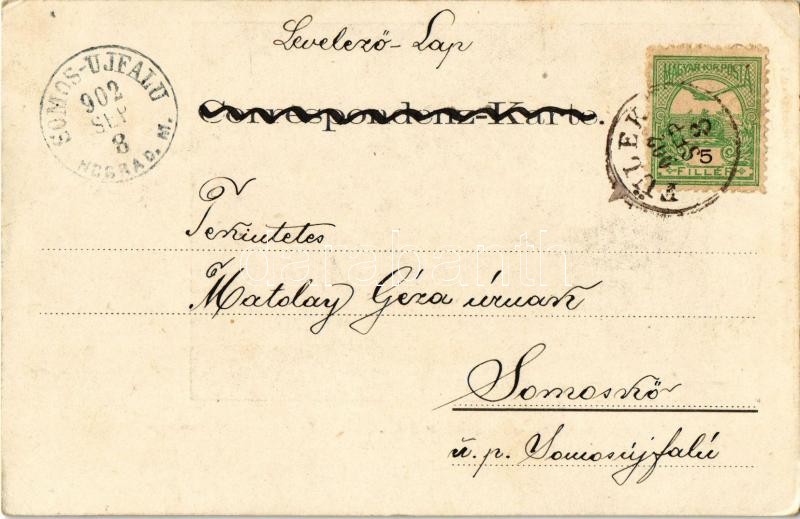 Levelező-Lap
Correspondenz-Karte.
SOMOS-UJFALU
902
SEP
8
NOGRAD. M.
MAGYAR·KIR·POSTA
5
FILLÉR
FÜLEK
902
SEP
8
Tekintetes
Matolay Géza úrnak
Somoskő
u. p. Somosújfalú